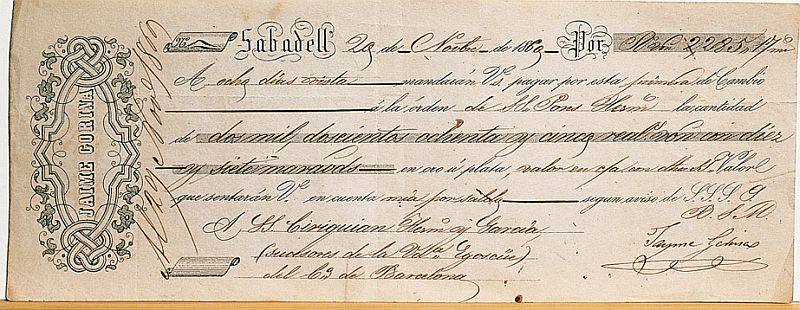 JAIME CORINA
Nº Sabadell 20 de Novbe de 1860 Por Rs vn 2,285,17 ms
A ocho dias vista mandarán Vs. pagar por esta primera de Cambio
á la órden de M. Pons Herms la cantidad
de dos mil, doscientos ochenta y cinco reals von con diez
y siete maravds en oro ú plata, valor en cta con dho Sr Valor
que sentarán V. en cuenta mia por saldo segun aviso de S.S.S.
A SS Herms y Garcia B. S. M.
(sucesores de la Vda Egoscúe) Jayme
del Co de Barcelona